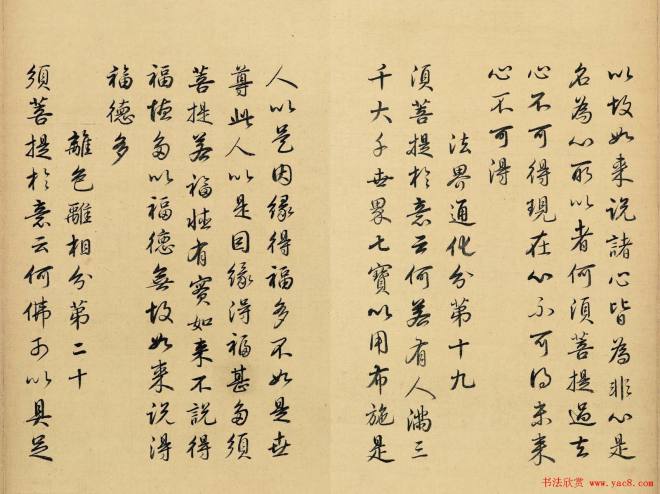 以故如来說諸心皆為非心是
名為心所以者何須菩提過去
心不可得現在心不可得未来
心不可得
法界通化分第十九
須菩提於意云何若有人滿三
千大千世界七寶以用布施是
人以是因緣得福多不如是世
尊此人以是因緣得福甚多須
菩提若福德有實如来不說得
福德多以福德無故如来說得
福德多
離色離相分第二十
須菩提於意云何佛可以具足
书法欣赏
www.yac8.com